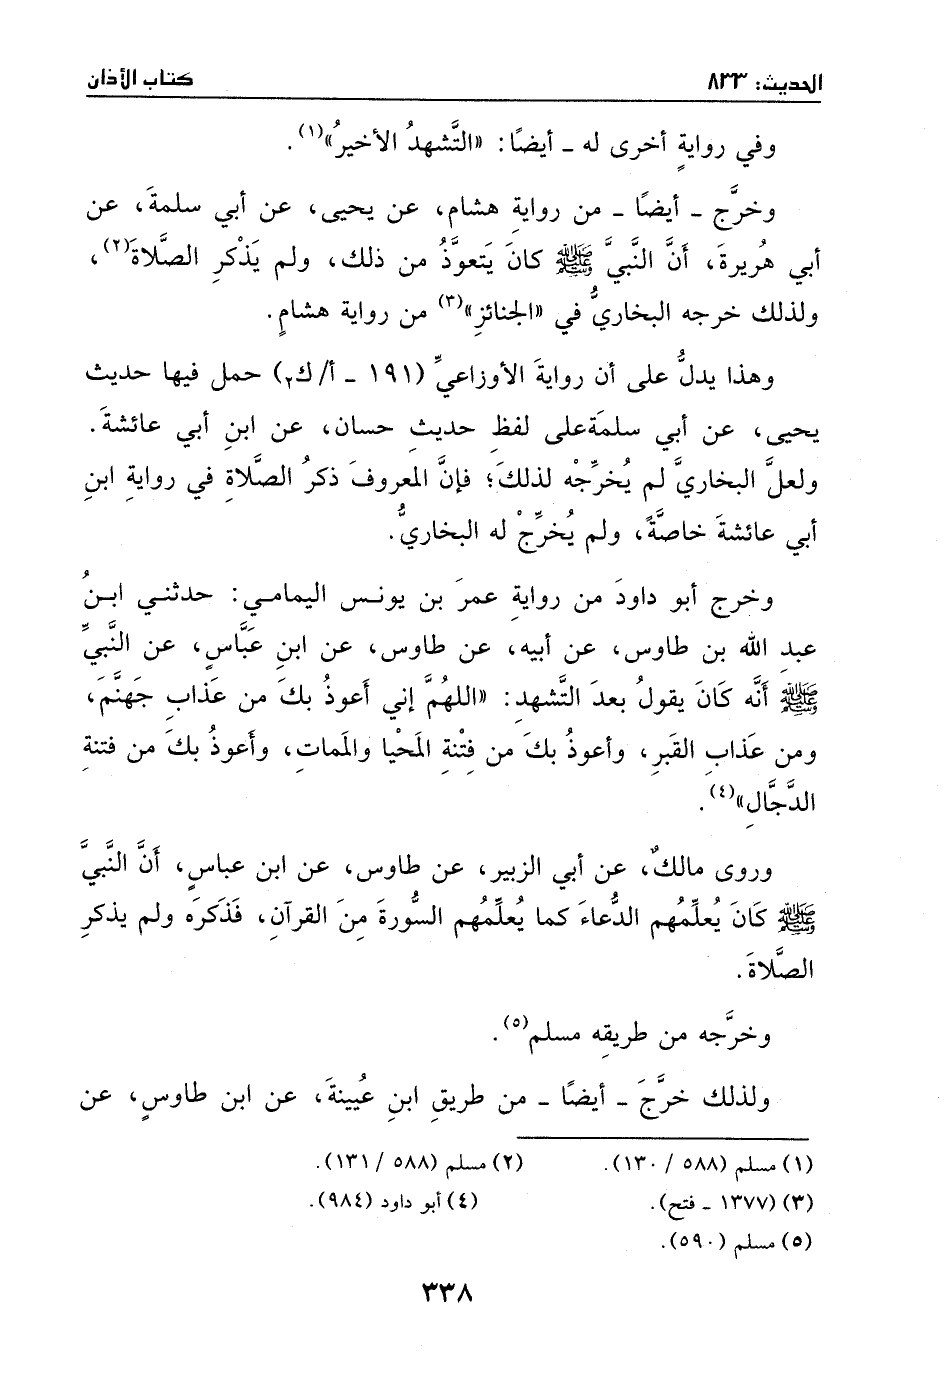 الحديث: ٨٣٣ كتاب الأذان
وفي روايةٍ أخرى له ـ أيضًا: «التَّشهدُ الأخيرُ»(١).
وخرَّج ـ أيضًا ـ من روايةِ هشام، عن يحيى، عن أبي سلمةَ، عن
أبي هُريرةَ، أنَّ النَّبيَّ ﷺ كانَ يَتعوَّذُ من ذلك، ولم يَذْكرِ الصَّلاةَ(٢)،
ولذلك خرجه البخاريُّ في «الجنائزِ»(٣) من رواية هشامٍ.
وهذا يدلُّ على أن روايةَ الأوزاعيِّ (١٩١ ـ أ/ك٢) حمل فيها حديث
يحيى، عن أبي سلمَةعلى لفظِ حديثِ حسان، عن ابنِ أبي عائشةَ.
ولعلَّ البخاريَّ لم يُخرِّجْه لذلكَ؛ فإنَّ المعروفَ ذكرُ الصَّلاةِ في روايةِ ابنِ
أبي عائشةَ خاصَّةً، ولم يُخرِّجْ له البخاريُّ.
وخرج أبو داودَ من روايةِ عمرَ بن يونس اليمامي: حدثني ابنُ
عبدِ الله بن طاوس، عن أبيه، عن طاوس، عن ابنِ عبَّاسٍ، عن النَّبيِّ
ﷺ أنَّه كَانَ يقولُ بعدَ التَّشهدِ: «اللهُمَّ إني أعوذُ بكَ من عَذابِ جَهنَّمَ،
ومن عَذابِ القَبرِ، وأعوذُ بكَ من فِتْنةِ المَحْيا والمَماتِ، وأَعوذُ بكَ من فتنةِ
الدَّجَّالِ»(٤).
وروى مالكٌ، عن أبي الزبير، عن طاوس، عن ابن عباسٍ، أَنَّ النَّبيَّ
ﷺ كَانَ يُعلِّمُهم الدُّعاءَ كما يُعلِّمُهم السُّورةَ مِنَ القرآنِ، فَذَكرَه ولم يذكرِ
الصَّلاةَ.
وخرَّجه من طريقِه مسلم(٥).
ولذلك خرَّجَ ـ أيضًا ـ من طريقِ ابنِ عُيينةَ، عن ابن طاوسٍ، عن
(١) مسلم (٥٨٨ / ١٣٠). (٢) مسلم (٥٨٨ / ١٣١).
(٣) (١٣٧٧ ـ فتح). (٤) أبو داود (٩٨٤).
(٥) مسلم (٥٩٠).
٣٣٨